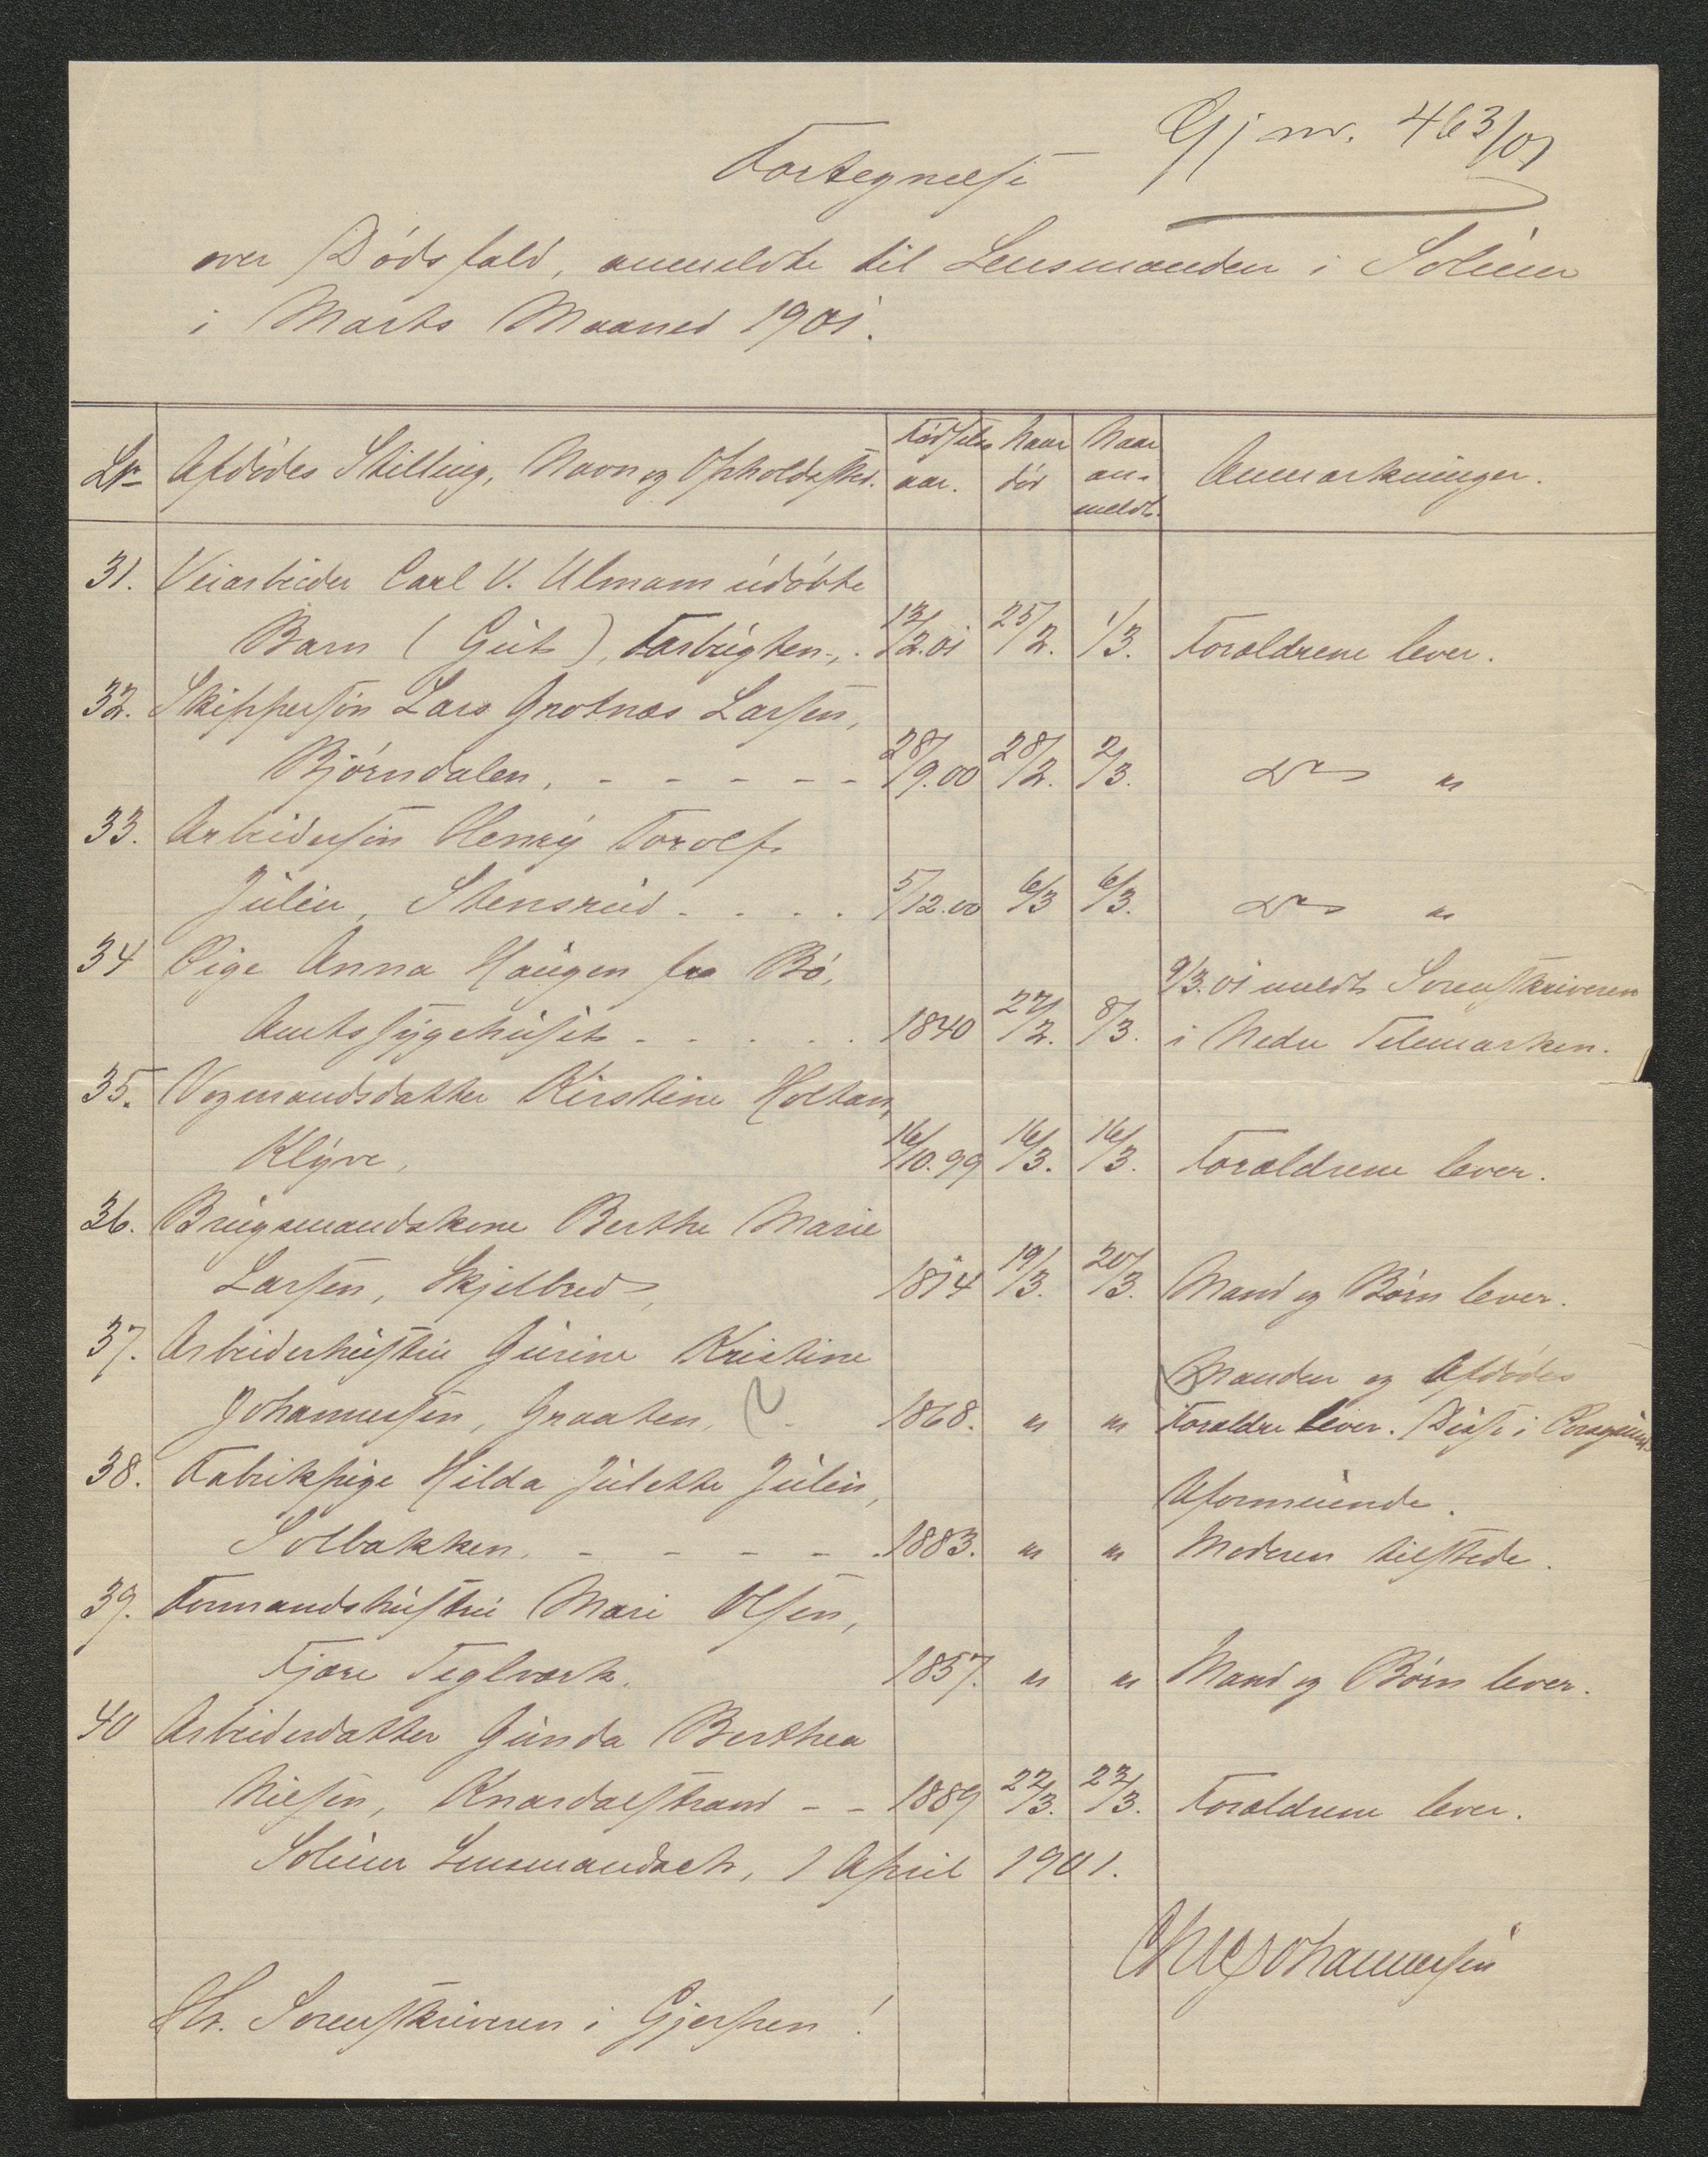 Gj nr. 463/01
Fortegnelse
over Dødsfald, anmeldte til Lensmanden i Solum
i Marts Maaned 1901.
Lnr Afdødes Stilling, Navn og Opholdssted. Fødselsaar. Naar død Naar anmeldt. Anmærkninger.
31. Veiarbeider Carl V. Ulmans udøbte
Barn (Gut), 13/2.01 25/2. 1/3. Forældrene lever.
32. Skippersøn Lars Grotnæs Larsen,
Bjørndalen, - - - - - 28/9.00 28/2. 2/3. Do "
33. Arbeidersøn Henry Torolf
Julin, Stensrud. . . . 5/12.00 6/3 6/3. Do "
34 Pige Anna Haugen fra Bø, 9/3.01 meldt Sorenskriveren
Amtssygehuset - . . . . 1840 27/2. 8/3. i Nedre Telemarken.
35. Vogmandsdatter Kirstine Holtan,
Klyve, 16/10.99 16/3. 16/3. Forældrene lever.
36. Brugsmandskone Berthe Marie
Larsen, Skjelbred, 1874 19/3. 20/3. Mand og Børn lever.
37. Arbeiderhustru Gurine Kristine Manden og Afdødes
Johannessen, Graaten, 1868. " " Forældre lever. Disse i Porsgrund.
38. Fabrikpige Hilda Julette Julin, Uformuende.
Solbakken. - - - - - 1883. " " Moderen tilstede.
39. Formandshustru Mari Olsen,
Fjære Teglværk. 1857. " " Mand og Børn lever.
40 Arbeiderdatter Gunda Berthea
Nilsen, Knardalstrand - - 1889 22/3. 23/3. Forældrene lever.
Solum Lensmandset, 1 April 1901.
Johannessen
Hr. Sorenskriveren i Gjerpen!